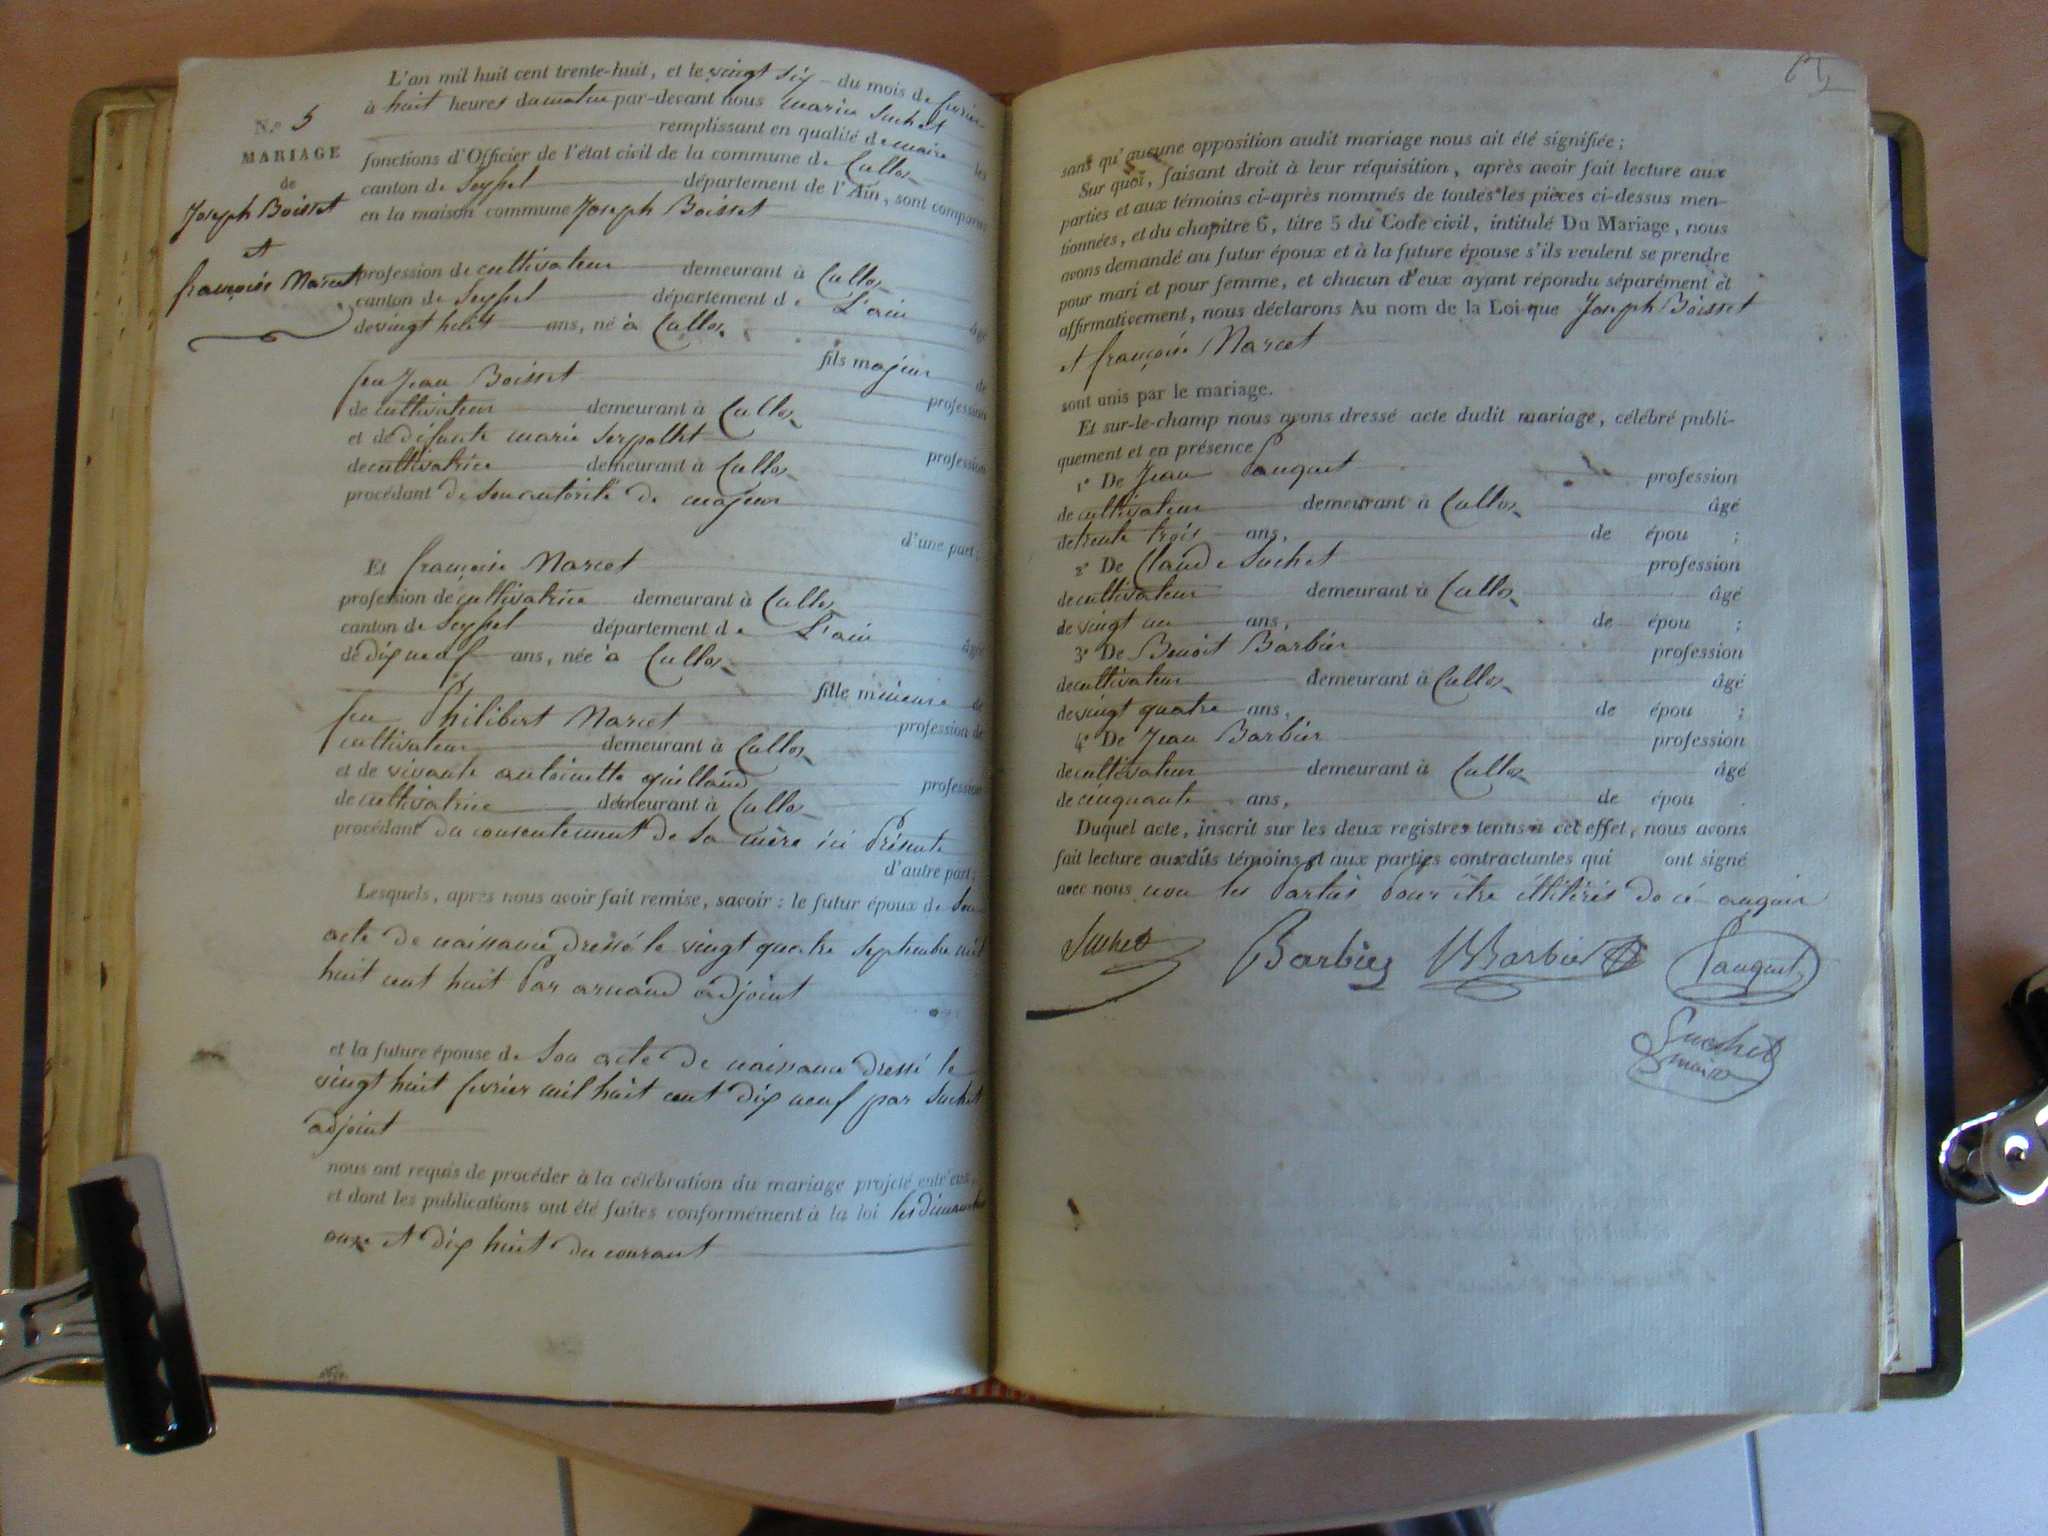 N.º 5
MARIAGE
de
Joseph Boisset
et
françoise Marcet
L'an mil huit cent trente-huit, et le vingt six du mois de fevrier
à huit heures du matin par-devant nous marin Suchet
remplissant en qualité de maire les
fonctions d'Officier de l'état civil de la commune de Culloz
canton de Seyssel département de l'Ain, sont comparus
en la maison commune Joseph Boisset
profession de cultivateur demeurant à Culloz
canton de Seyssel département de L'ain âgé
de vingt huit ans, né à Culloz
fils majeur de
feu Jean Boisset profession
de cultivateur demeurant à Culloz
et de défunte marie Serpollet profession
de cultivatrice demeurant à Culloz
procédant de son autorité de majeur
d'une part;
Et françoise Marcet
profession de cultivatrice demeurant à Culloz
canton de Seyssel département de L'ain âgée
de dix neuf ans, née à Culloz
fille mineure de
feu Philibert Marcet profession de
cultivateur demeurant à Culloz
et de vivante antoinette guilland profession
de cultivatrice demeurant à Culloz
procédant du consentement de sa mère ici Présente
d'autre part;
Lesquels, après nous avoir fait remise, savoir: le futur époux de son
acte de naissance dressé le vingt quatre septembre mil
huit cent huit Par arnaud adjoint
et la future épouse de son acte de naissance dressé le
vingt huit fevrier mil huit cent dix neuf par Suchet
adjoint
nous ont requis de procéder à la célébration du mariage projeté entr'eux,
et dont les publications ont été faites conformément à la loi les dimanches
onze et dix huit du courant
sans qu'aucune opposition audit mariage nous ait été signifiée;
Sur quoi, faisant droit à leur réquisition, après avoir fait lecture aux
parties et aux témoins ci-après nommés de toutes les pièces ci-dessus men-
tionnées, et du chapitre 6, titre 5 du Code civil, intitulé Du Mariage, nous
avons demandé au futur époux et à la future épouse s'ils veulent se prendre
pour mari et pour femme, et chacun d'eux ayant répondu séparément et
affirmativement, nous déclarons Au nom de la Loi que Joseph Boisset
et françoise Marcet
sont unis par le mariage.
Et sur-le-champ nous avons dressé acte dudit mariage, célébré publi-
quement et en présence
1º De Jean Pauquet profession
de cultivateur demeurant à Culloz âgé
de trente trois ans, de épou ;
2º De Claude Suchet profession
de cultivateur demeurant à Culloz âgé
de vingt un ans, de épou ;
3º De Benoit Barbier profession
de cultivateur demeurant à Culloz âgé
de vingt quatre ans, de épou ;
4º De Jean Barbier profession
de cultivateur demeurant à Culloz âgé
de cinquante ans, de épou .
Duquel acte, inscrit sur les deux registres tenus à cet effet, nous avons
fait lecture auxdits témoins et aux parties contractantes qui ont signé
avec nous non les Parties Pour être illitérés de ce enquis
Suchet Barbier Barbier Pauquet
Suchet
maire